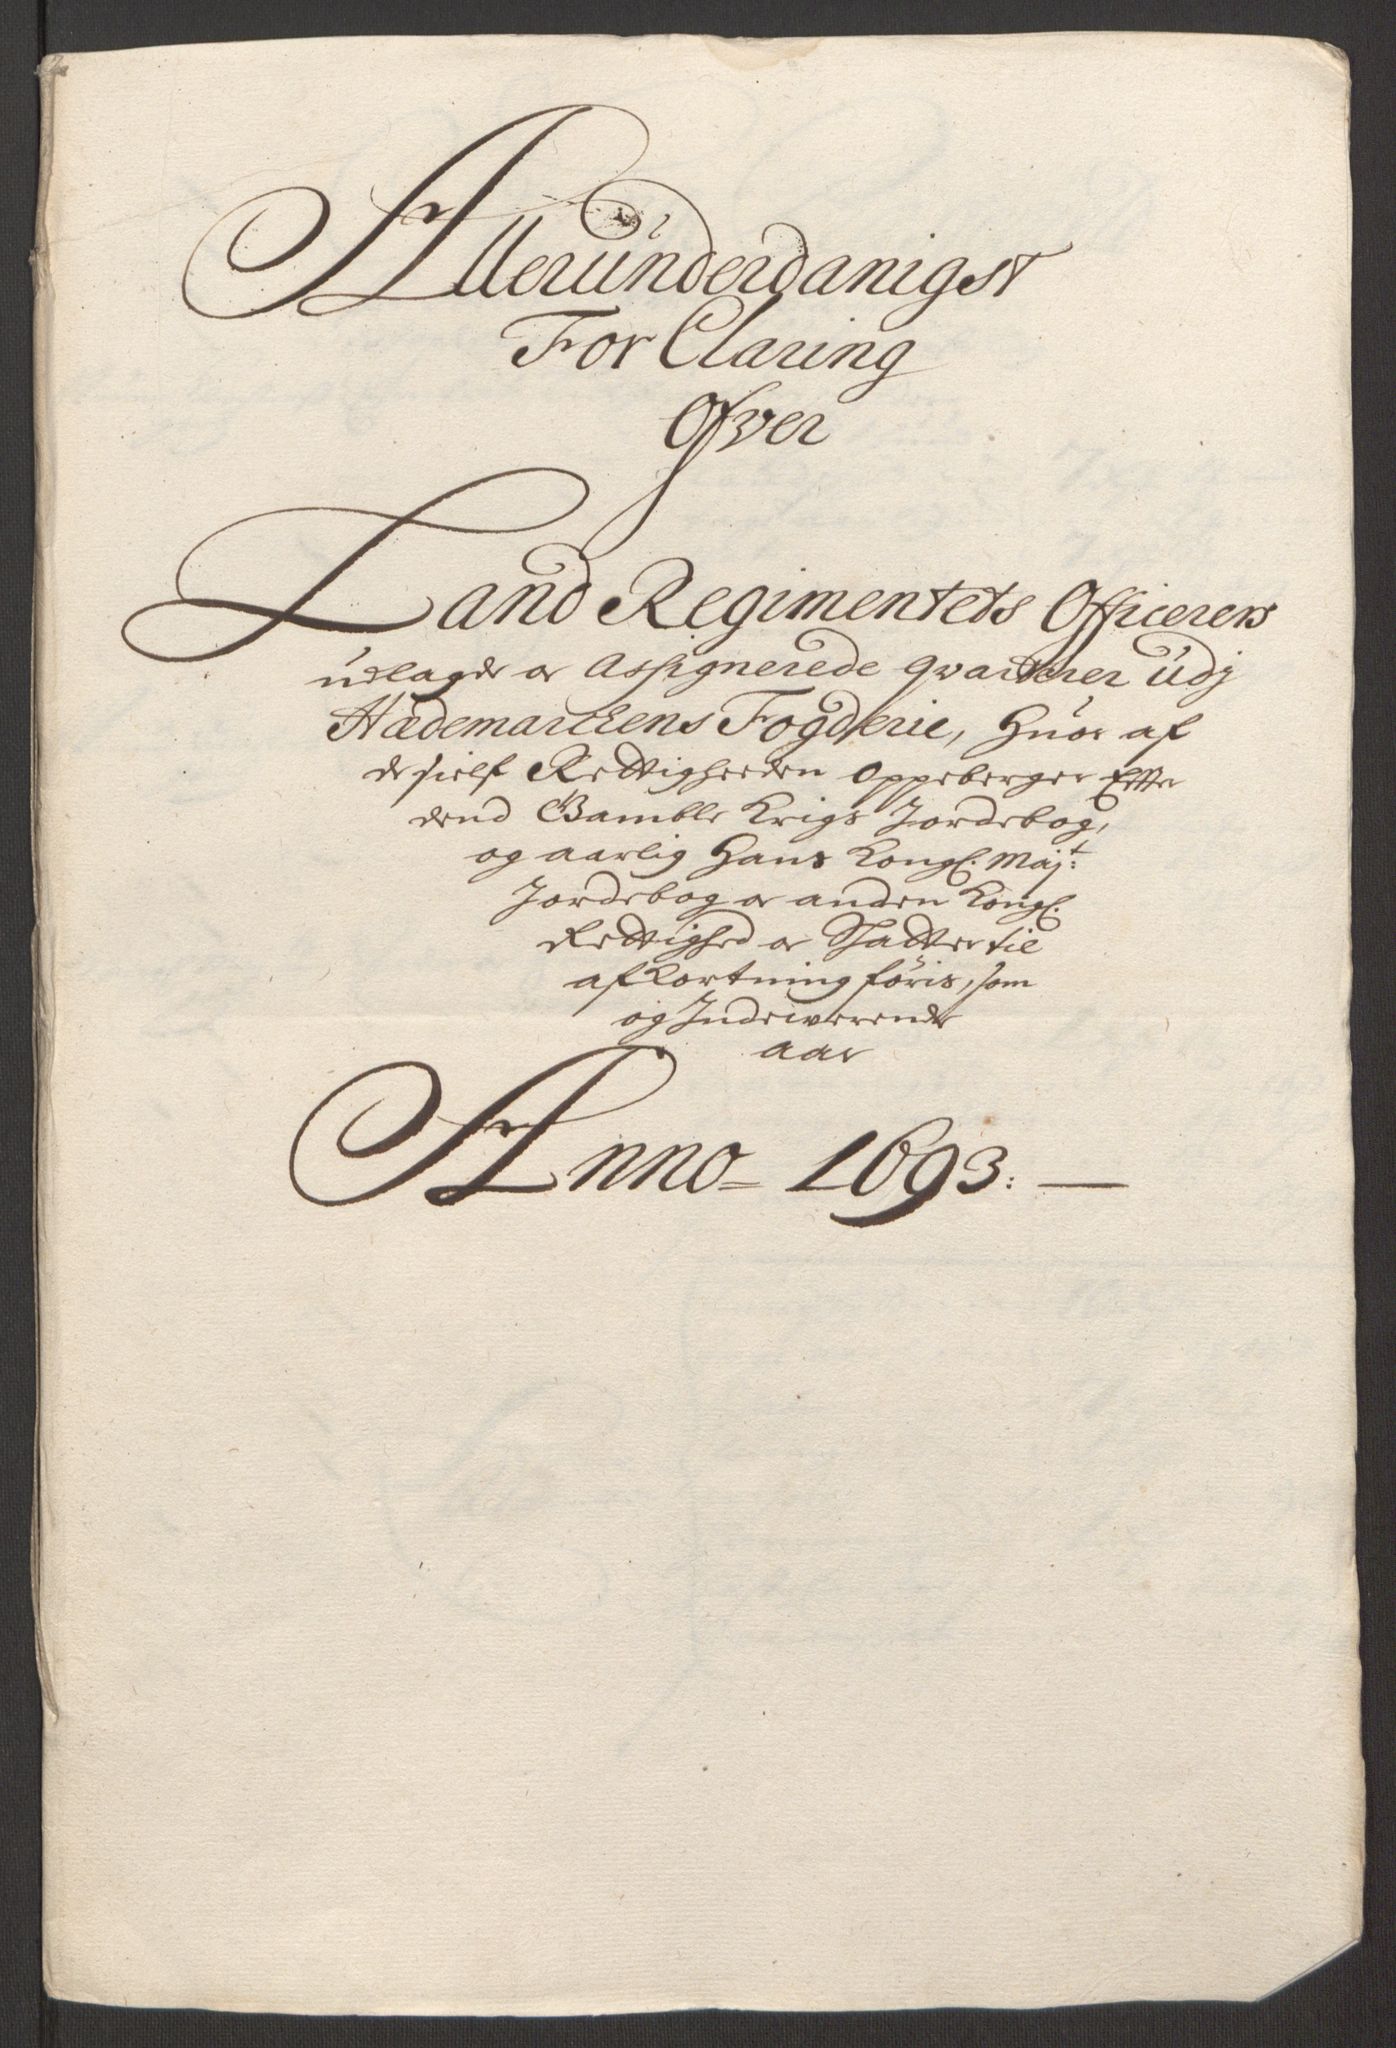 Allerúnderdanigst
For Claring
Ofver
Land Regimentets Officerers
udlagde oc Assignerede qvarterer Udj
Hædemarckens Fogderie, Huor af
de sielf Rettigheeden oppeberger Effter
dend Gamble Krigs Jordebog,
og aarlig Hans Kongl. Maj:t
Jordebog oc anden Kongl.
Rettighed oc Skatter til
afkortning föris, som
og Indeiverende
aar
Anno = 1693: —